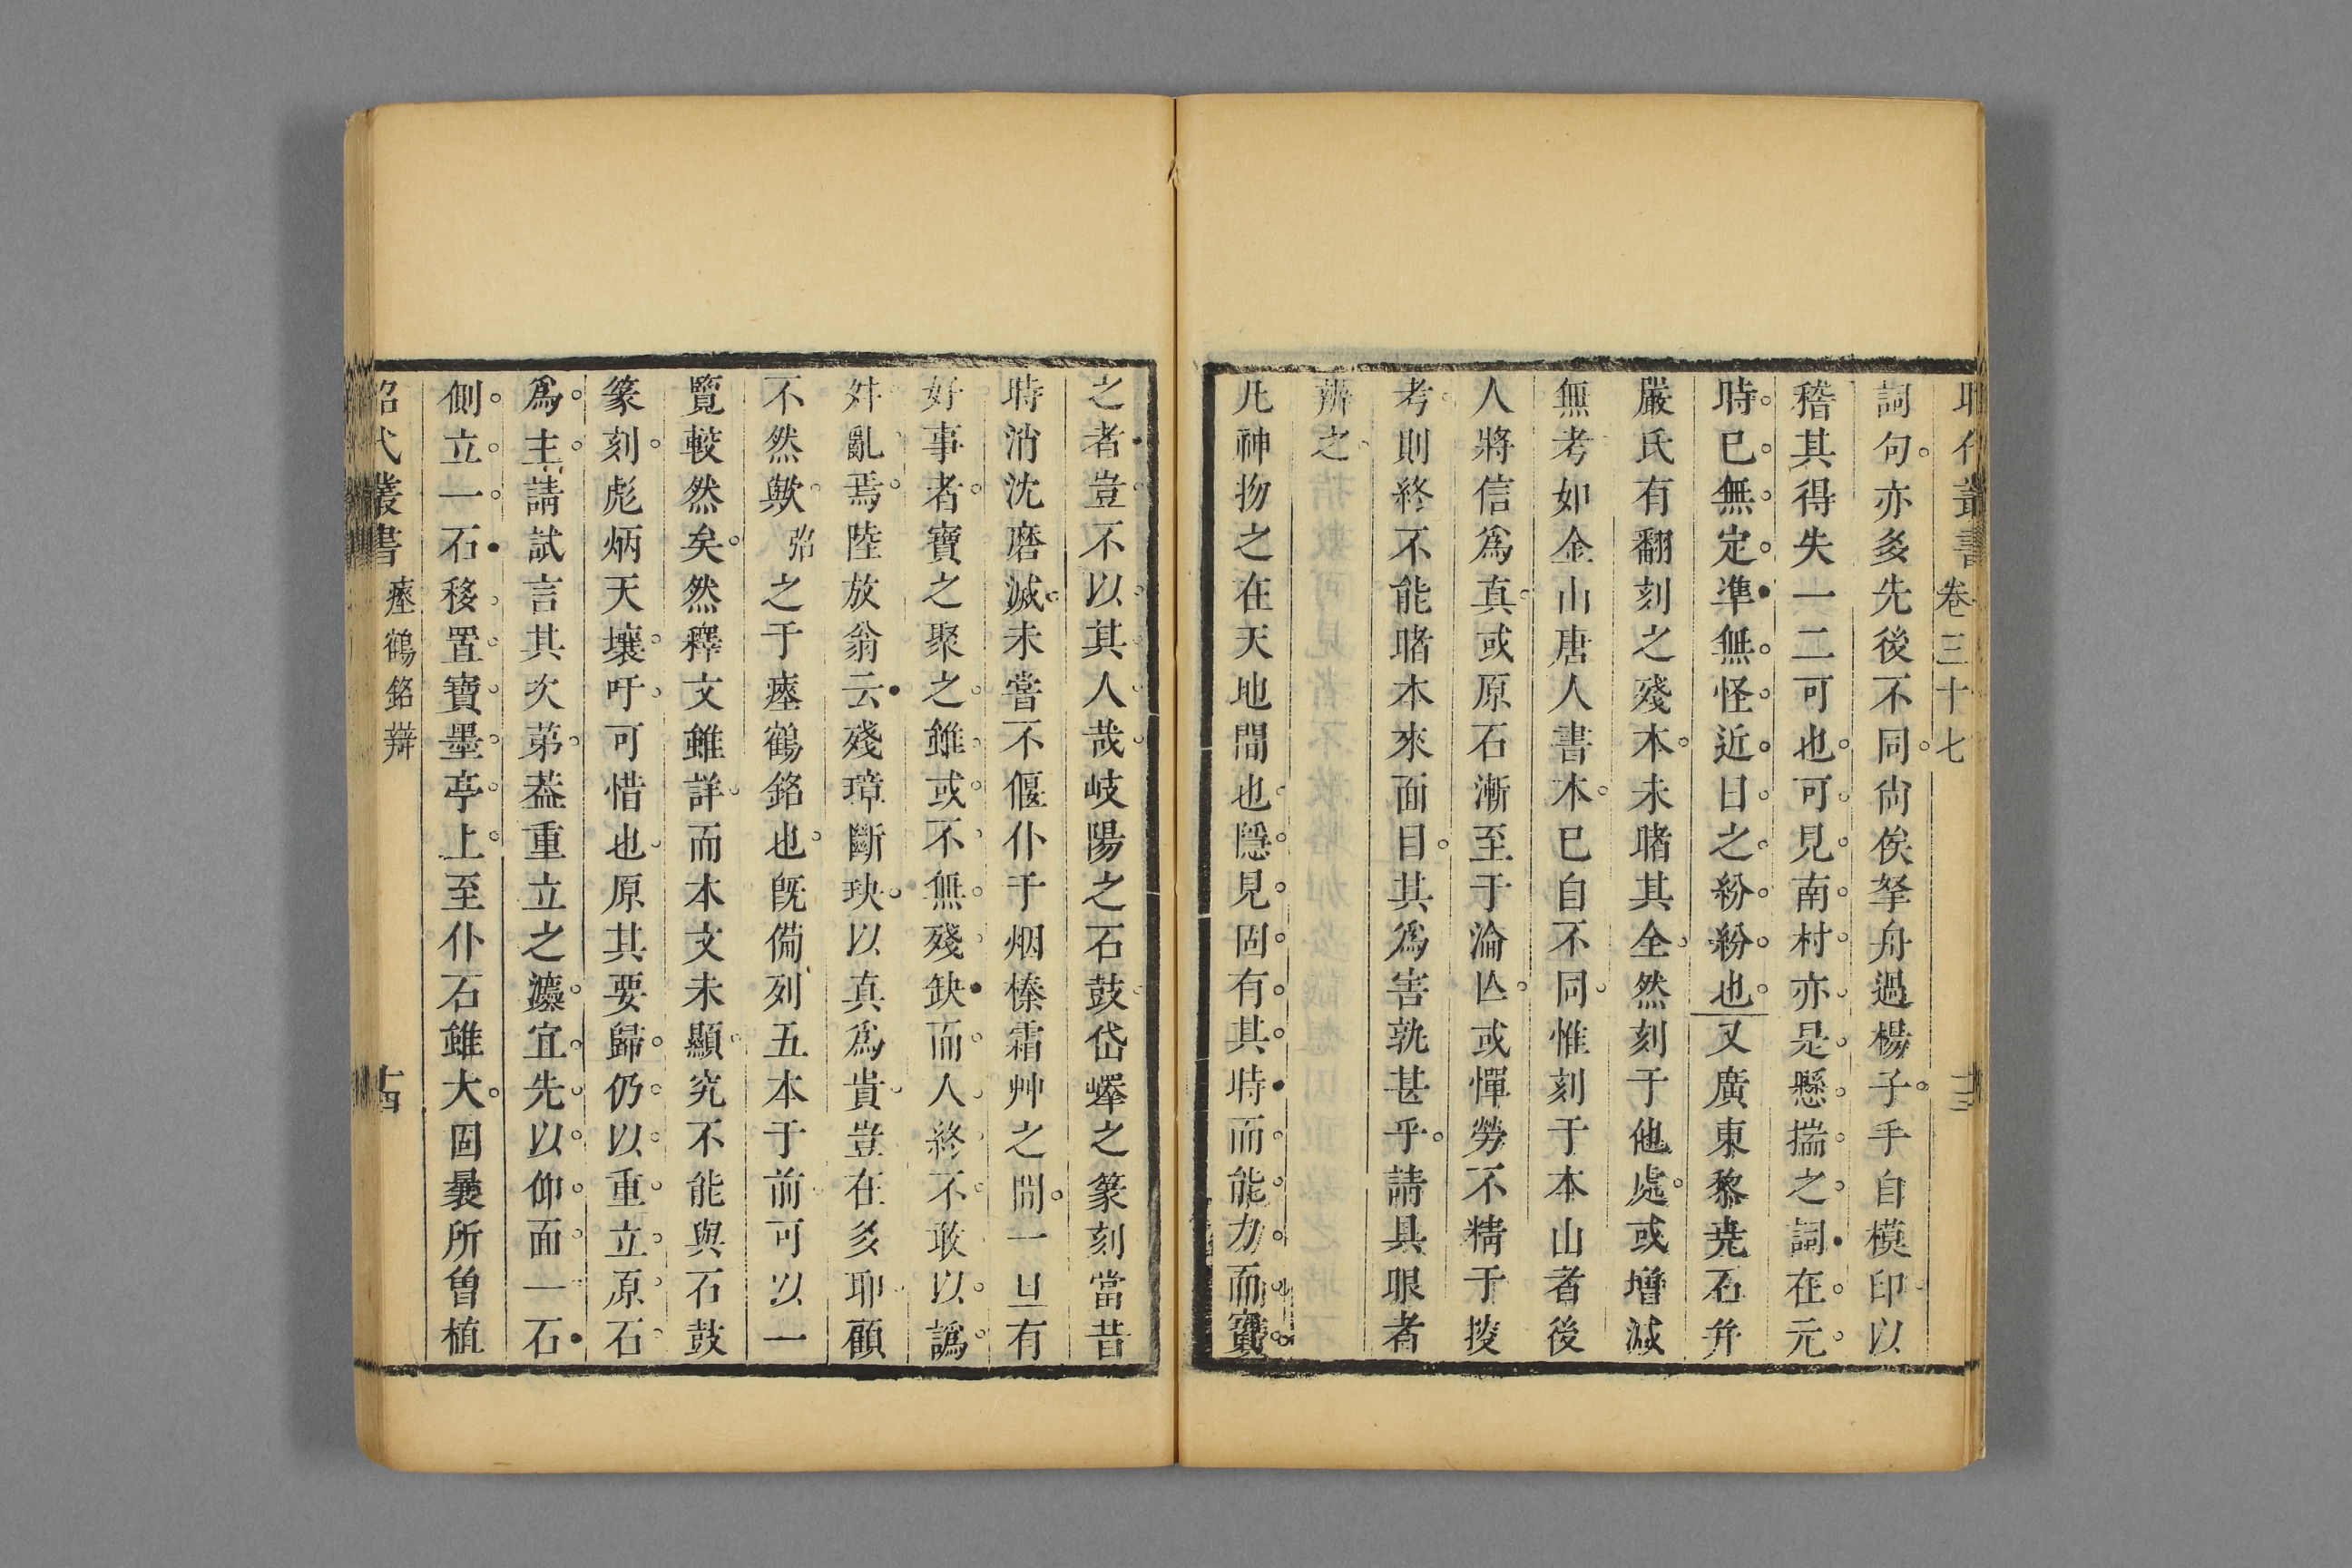 昭代叢書 卷三十七 十三
詞句亦多先後不同尙俟拏舟過楊子手自模印以
稽其得失一二可也可見南村亦是懸揣之詞在元
時已無定準無怪近日之紛紛也又廣東黎尭石弁
嚴氏有翻刻之殘本未睹其全然刻于他處或增減
無考如金山唐人書本已自不同惟刻于本山者後
人將信爲真或原石漸至于淪亾或憚勞不精于𢮦
考則終不能睹本來面目其爲害孰甚乎請具眼者
辨之
凡神物之在天地間也隱見固有其時而能力而寶
之者豈不以其人哉岐陽之石鼓岱嶧之篆刻當昔
時消沈磨滅未嘗不偃仆于烟榛霜艸之間一旦有
好事者寶之聚之雖或不無殘缺而人終不敢以譌
舛亂焉陸放翁云殘璋斷玦以真爲貴豈在多耶顧
不然歟弨之于瘞鶴銘也旣僃列五本于前可以一
覽較然矣然釋文雖詳而本文未顯究不能與石鼓
篆刻彪炳天壤吁可惜也原其要歸仍以重立原石
爲主請試言其次苐葢重立之灋宜先以仰面一石
側立一石移置寶墨亭上至仆石雖大固曩所曾植
昭代叢書 瘞鶴銘辯 十四